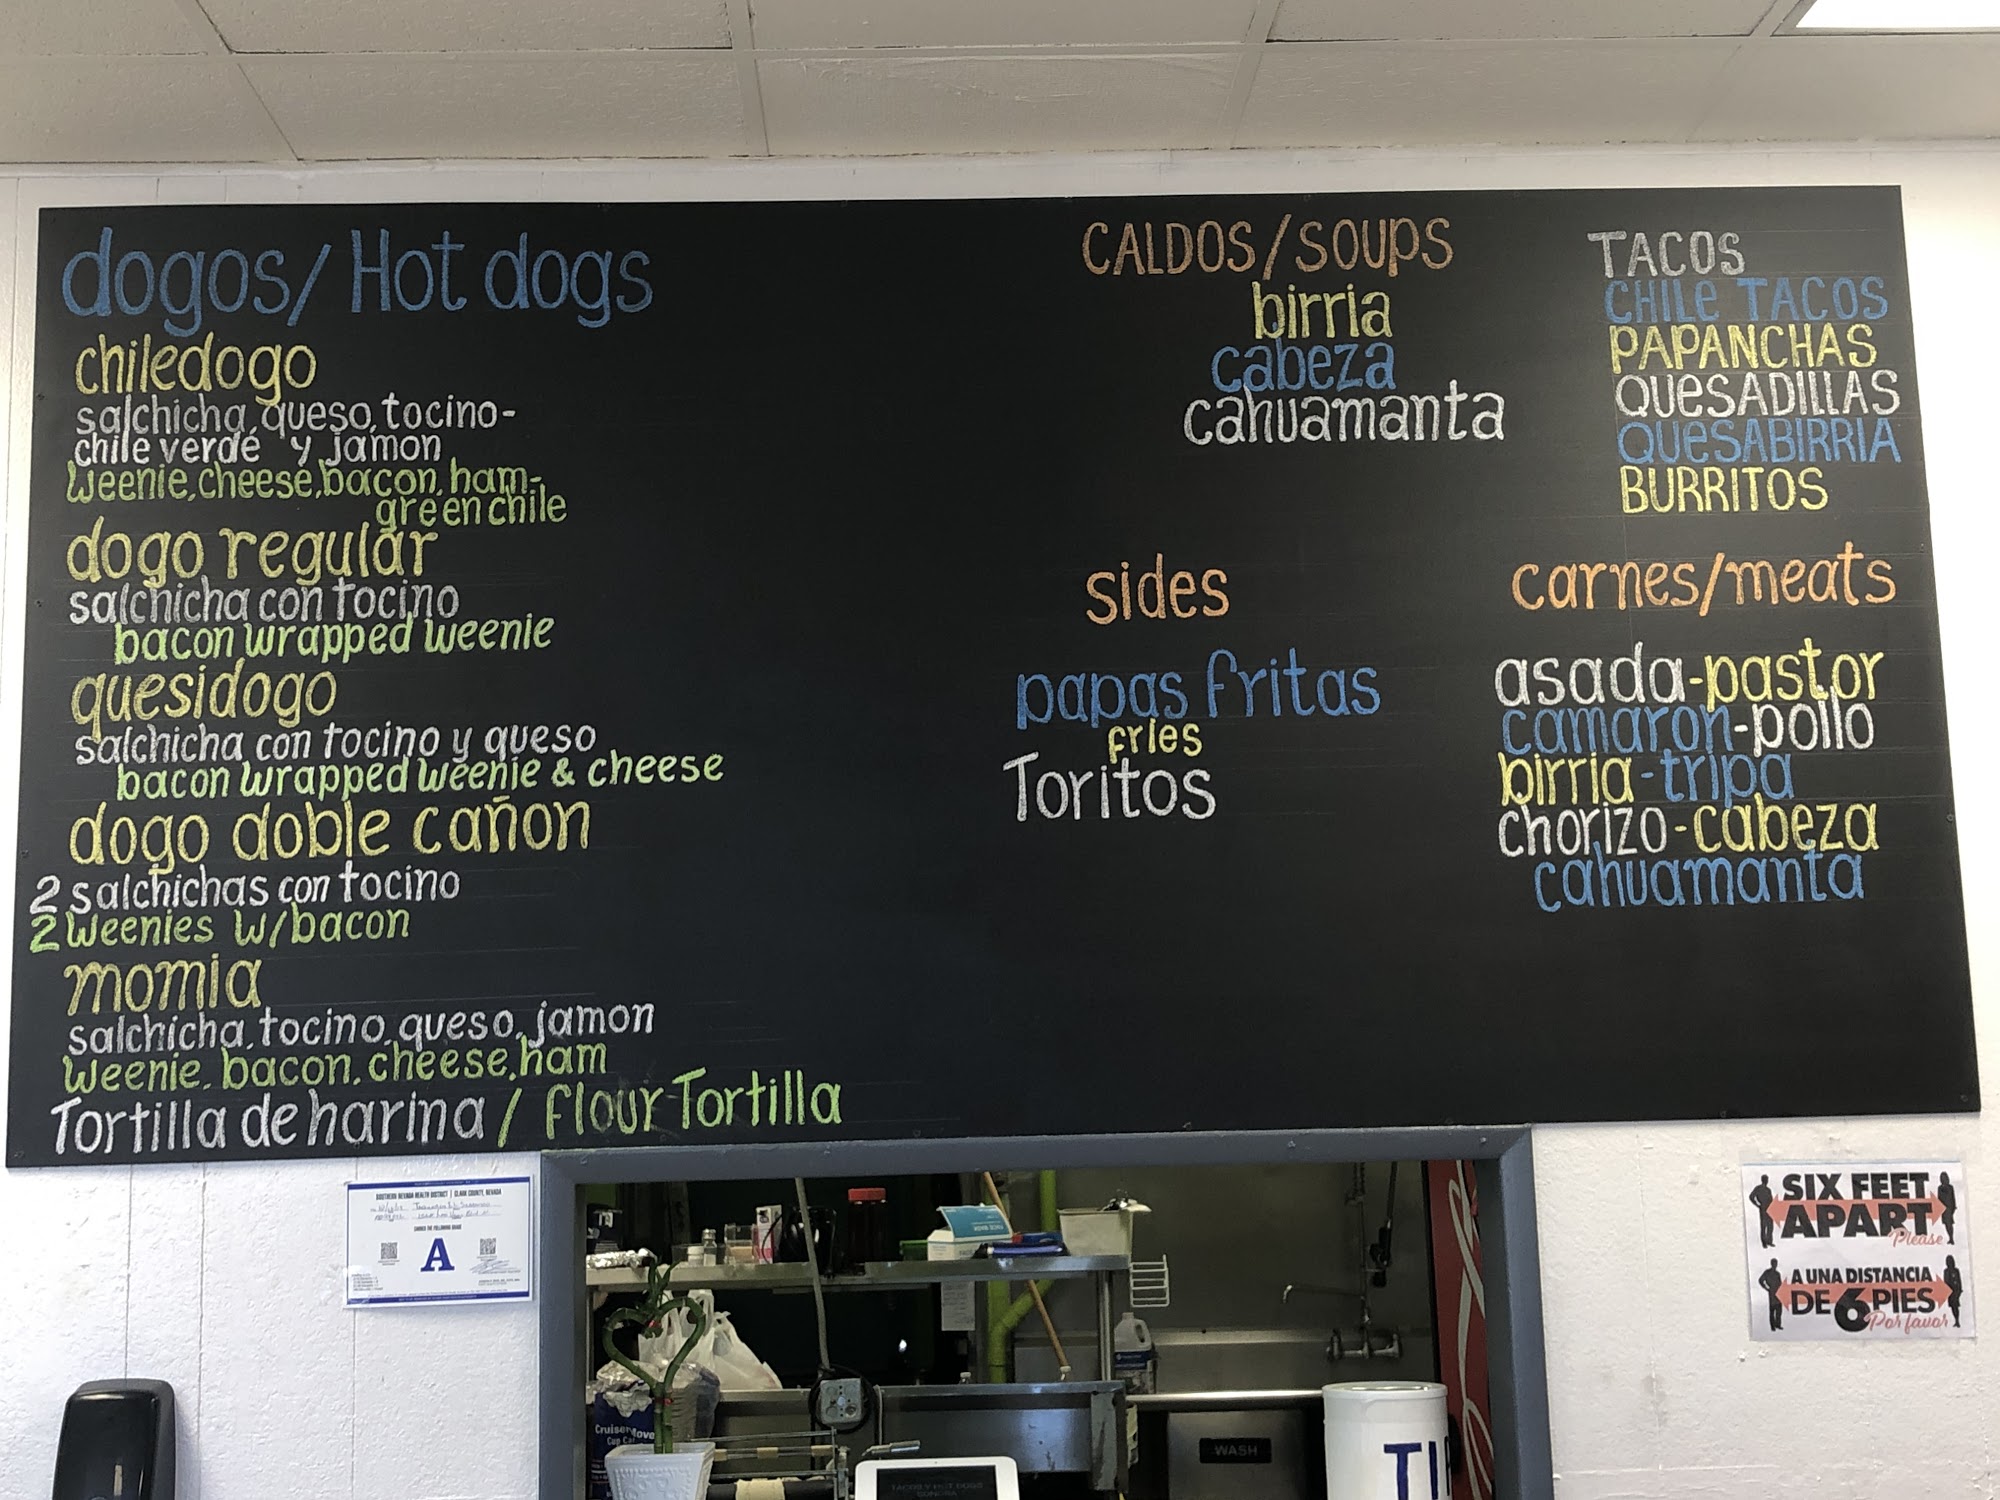 dogos/Hot dogs
chiledogo
salchicha, queso, tocino-
chile verde y jamon
weenie, cheese, bacon, ham-
green chile
dogo regular
salchicha con tocino
bacon wrapped weenie
quesidogo
salchicha con tocino y queso
bacon wrapped weenie & cheese
dogo doble cañon
2 salchichas con tocino
2 weenies w/bacon
momia
salchicha, tocino, queso, jamon
weenie, bacon, cheese, ham
Tortilla de harina / flour Tortilla
CALDOS/SOUPS
birria
cabeza
cahuamanta
sides
papas fritas
fries
Toritos
TACOS
CHILE TACOS
PAPANCHAS
QUESADILLAS
QUESABIRRIA
BURRITOS
carnes/meats
asada-pastor
camaron-pollo
birria-tripa
chorizo-cabeza
cahuamanta
SOUTHERN NEVADA HEALTH DISTRICT | CLARK COUNTY, NEVADA
EARNED THE FOLLOWING GRADE
A
SIX FEET
APART
Please
A UNA DISTANCIA
DE 6 PIES
Por favor
WASH
TACOS Y HOT DOGS
SONORA
TI